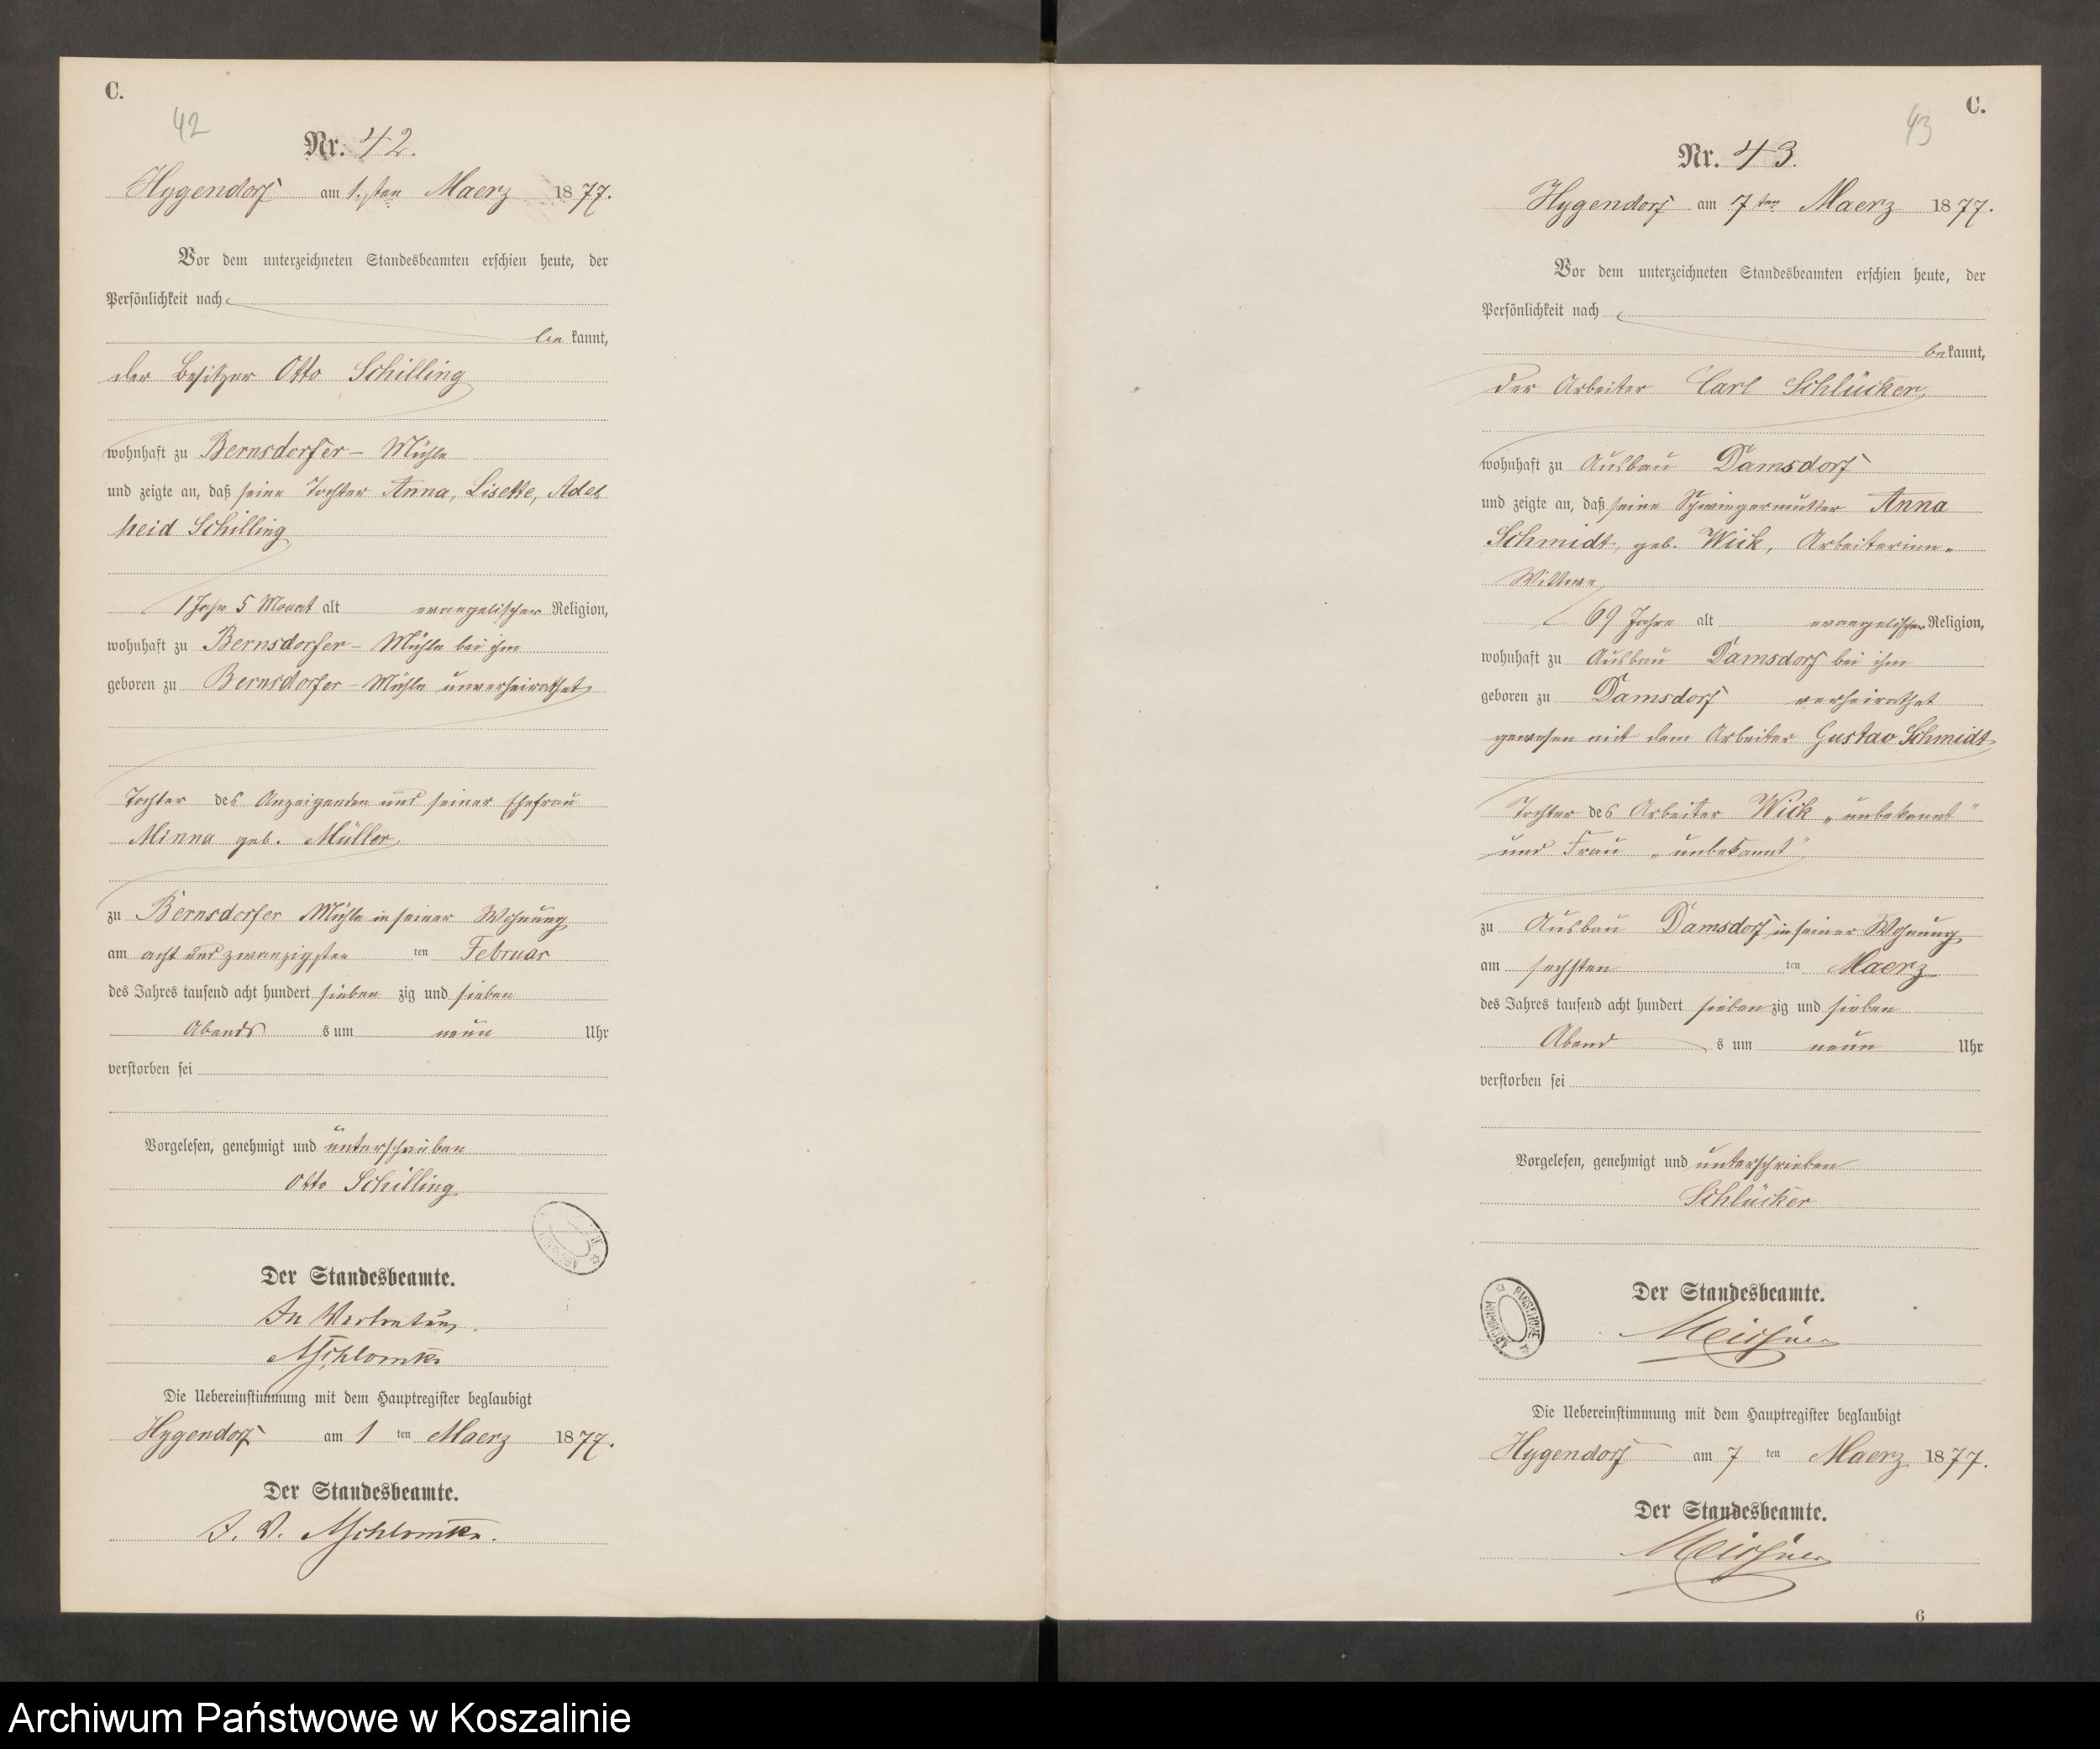 C.
42
Nr. 42.
Hygendorf am 1.sten Maerz 1877.
Vor dem unterzeichneten Standesbeamten erschien heute, der
Persönlichkeit nach
be kannt,
der Besitzer Otto Schilling
wohnhaft zu Bernsdorfer - Mühle
und zeigte an, daß seine Tochter Anna, Lisette, Adel
heid Schilling
1 Jahr 5 Monat alt evangelischer Religion,
wohnhaft zu Bernsdorfer - Mühle bei ihm
geboren zu Bernsdorfer - Mühle unverheirathet
Tochter des Anzeigenden und seiner Ehefrau
Minna geb. Müller
zu Bernsdorfer Mühle in seiner Wohnung
am acht und zwanzigsten ten Februar
des Jahres tausend acht hundert sieben zig und sieben
Abends s um neun Uhr
verstorben sei
Vorgelesen, genehmigt und unterschrieben
Otto Schilling
Der Standesbeamte.
In Vertretung.
Die Uebereinstimmung mit dem Hauptregister beglaubigt
Hygendorf am 1 ten Maerz 1877.
Der Standesbeamte.
I. V.
C.
43
Nr. 43.
Hygendorf am 7ten Maerz 1877.
Vor dem unterzeichneten Standesbeamten erschien heute, der
Persönlichkeit nach
be kannt,
der Arbeiter Carl Schlücker
wohnhaft zu Ausbau Damsdorf
und zeigte an, daß seine Schwiegermutter Anna
Schmidt, geb. Wick, Arbeiterinn-
Wittwe,
69 Jahre alt evangelischer Religion,
wohnhaft zu Ausbau Damsdorf bei ihm
geboren zu Damsdorf verheirathet
gewesen mit dem Arbeiter Gustav Schmidt
Tochter des Arbeiter Wick „unbekannt"
und Frau „unbekannt"
zu Ausbau Damsdorf in seiner Wohnung
am sechsten ten Maerz
des Jahres tausend acht hundert sieben zig und sieben
Abend s um neun Uhr
verstorben sei
Vorgelesen, genehmigt und unterschrieben
Schlücker
Der Standesbeamte.
Die Uebereinstimmung mit dem Hauptregister beglaubigt
Hygendorf am 7 ten Maerz 1877.
Der Standesbeamte.
6
Archiwum Państwowe w Koszalinie